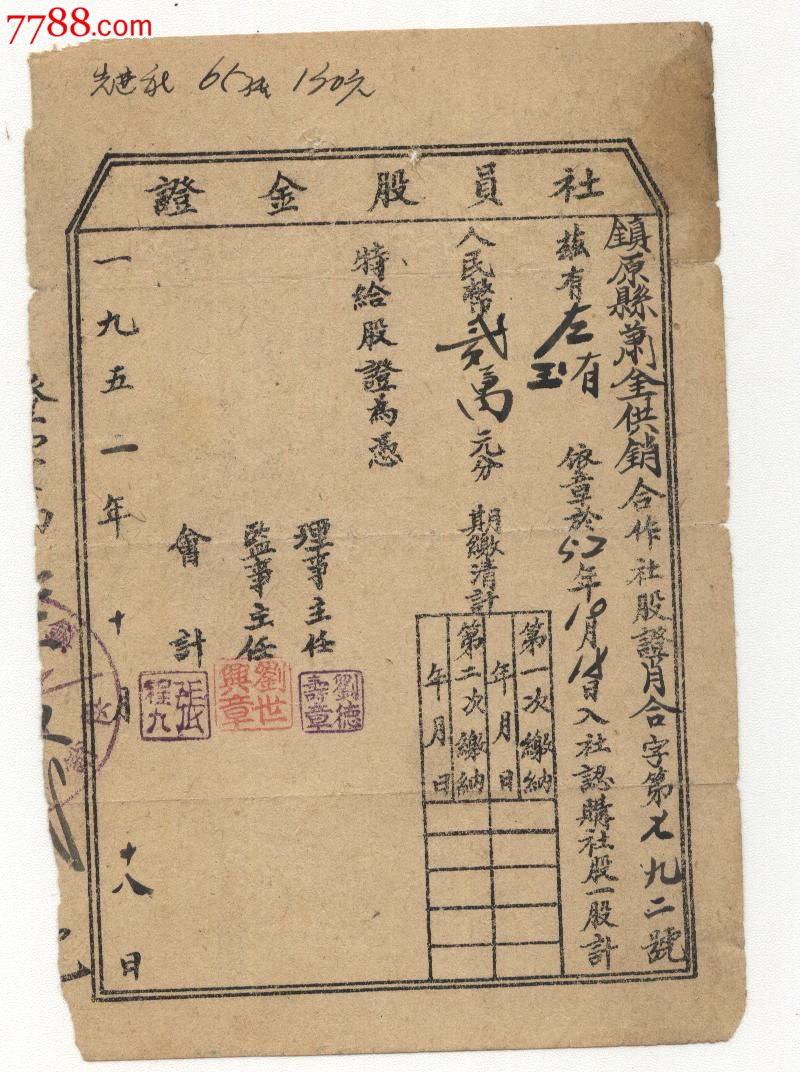 7788.com
65 150元
社員股金證
鎮原縣蕭金供銷合作社股證肖合字第七九二號
茲有左玉有依章於52年10月18日入社認購社股一股計
人民幣貳萬元分期繳清計
第一次繳納
年月日
第二次繳納
年月日
特給股證為憑
理事主任
劉德壽章
監事主任
劉世興章
會計
張程九
一九五一年十月十八日